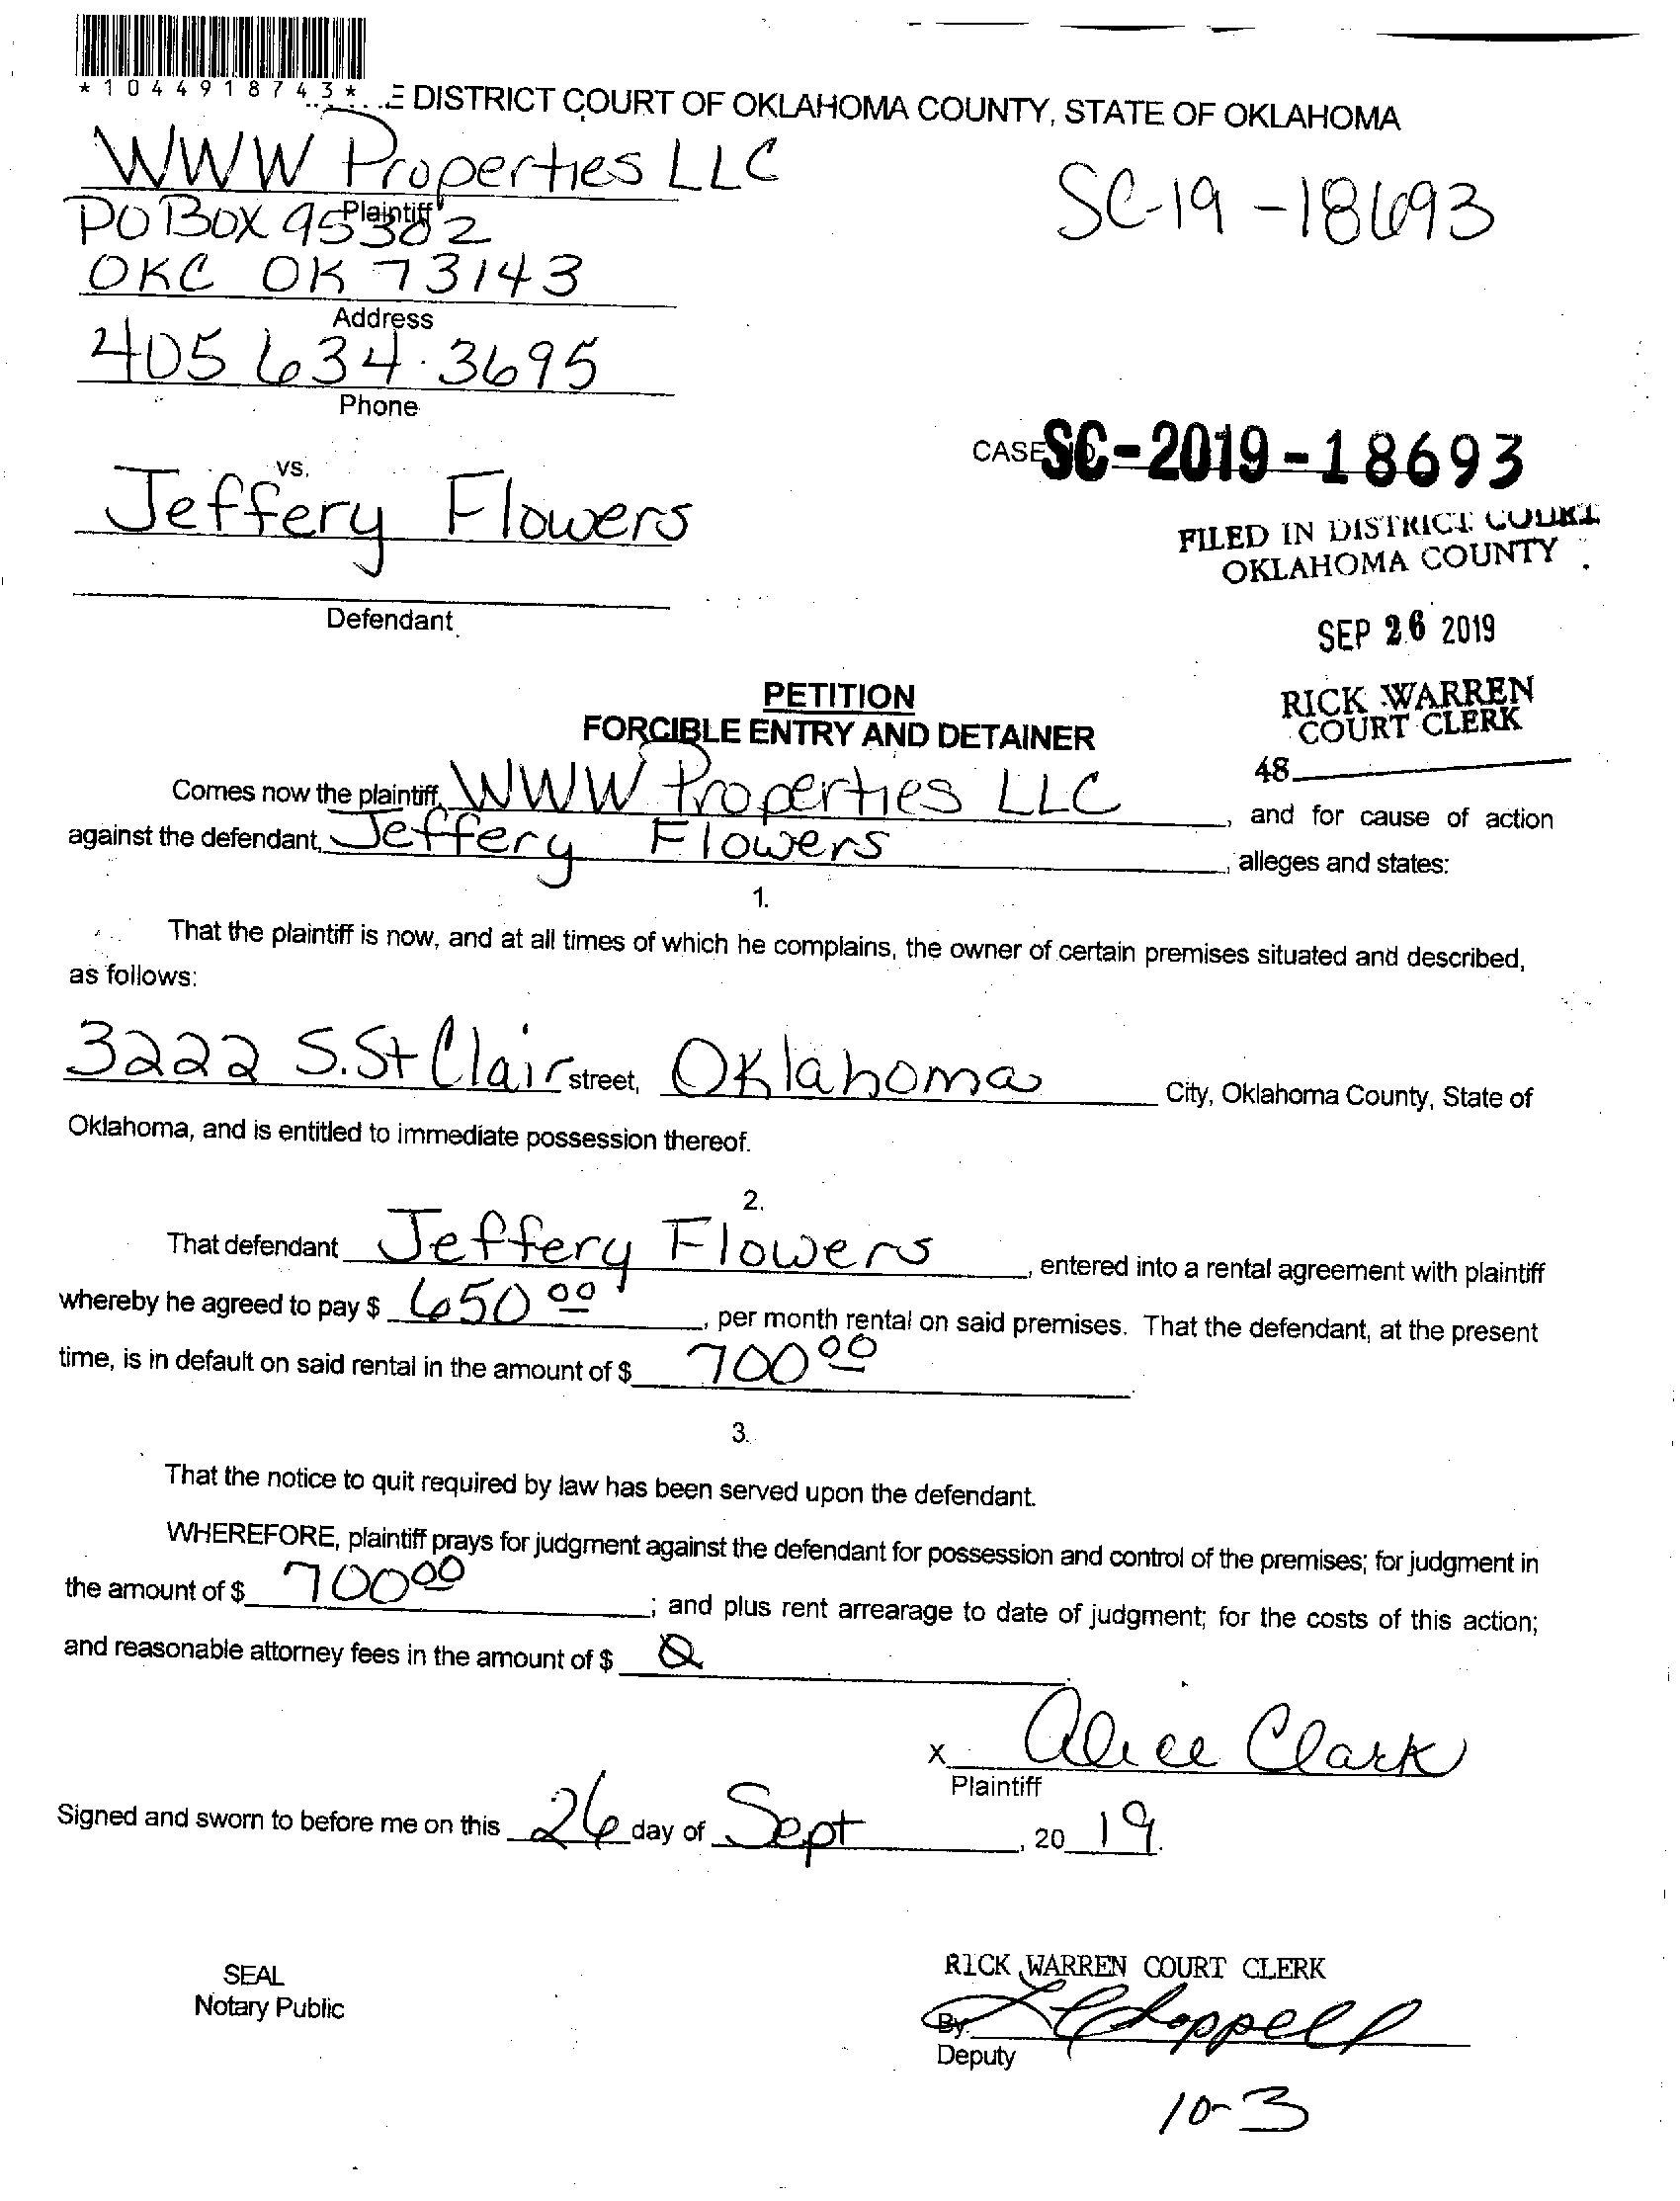 *1044918743*
E DISTRICT COURT OF OKLAHOMA COUNTY, STATE OF OKLAHOMA
WWW Properties LLC
SC-19-18693
Plaintiff
PO Box 95382
OKC OK 73143
Address
405 634.3695
Phone
CASE SC-2019-18693
vs.
Jeffery Flowers
FILED IN DISTRICT COURT
OKLAHOMA COUNTY
Defendant
SEP 26 2019
PETITION
RICK WARREN
COURT CLERK
FORCIBLE ENTRY AND DETAINER
48
Comes now the plaintiff, WWW Properties LLC, and for cause of action
against the defendant, Jeffery Flowers, alleges and states:
1.
That the plaintiff is now, and at all times of which he complains, the owner of certain premises situated and described,
as follows:
3222 S. St Clair street, Oklahoma City, Oklahoma County, State of
Oklahoma, and is entitled to immediate possession thereof.
2.
That defendant Jeffery Flowers, entered into a rental agreement with plaintiff
whereby he agreed to pay $ 650 00, per month rental on said premises. That the defendant, at the present
time, is in default on said rental in the amount of $ 700 00
3.
That the notice to quit required by law has been served upon the defendant.
WHEREFORE, plaintiff prays for judgment against the defendant for possession and control of the premises; for judgment in
the amount of $ 700 00; and plus rent arrearage to date of judgment; for the costs of this action;
and reasonable attorney fees in the amount of $ 0.
x Alice Clark
Plaintiff
Signed and sworn to before me on this 26 day of Sept, 20 19.
RICK WARREN COURT CLERK
SEAL
Notary Public
By
Deputy
10-3